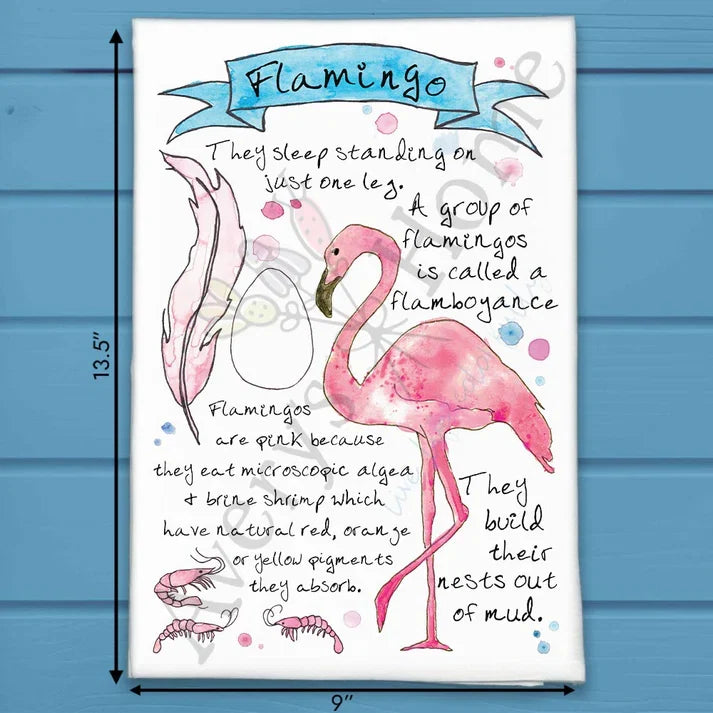 Flamingo
They sleep standing on
just one leg.
A group of
flamingos
is called a
flamboyance
Flamingos
are pink because
they eat microscopic algea
& brine shrimp which
have natural red, orange
or yellow pigments
they absorb.
They
build
their
nests out
of mud.
13.5"
9"
Avery's Home